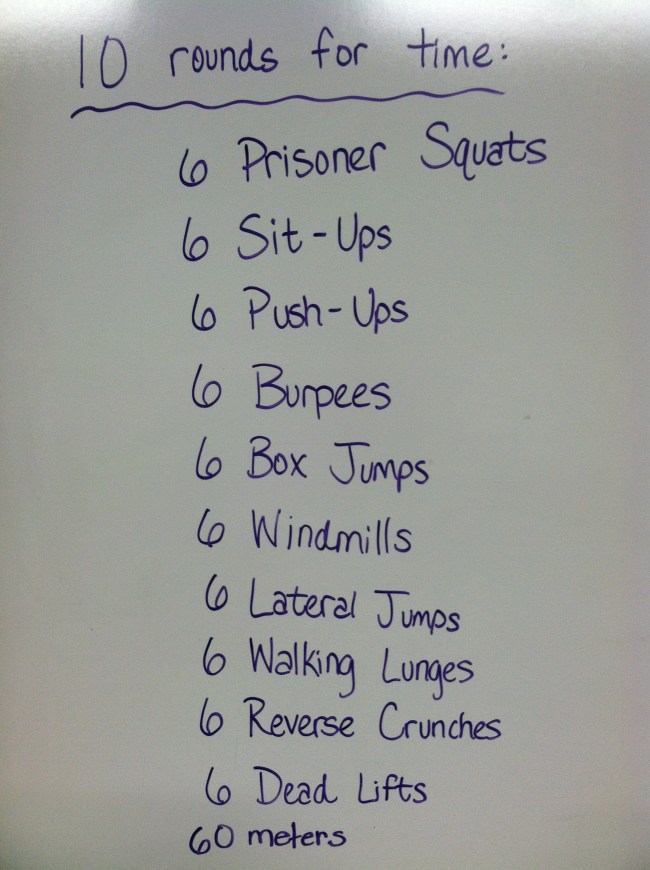 10 rounds for time:
6 Prisoner Squats
6 Sit-Ups
6 Push-Ups
6 Burpees
6 Box Jumps
6 Windmills
6 Lateral Jumps
6 Walking Lunges
6 Reverse Crunches
6 Dead Lifts
60 meters